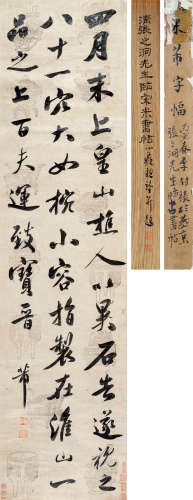 米芾字幅
張之洞先生師古書帖
清張之洞先生師宋米書帖
四月末上皇山樵人以異石告遂視之
八十一穴大如椀小容指製在淮山一
品之上百夫運致寶晉 芾